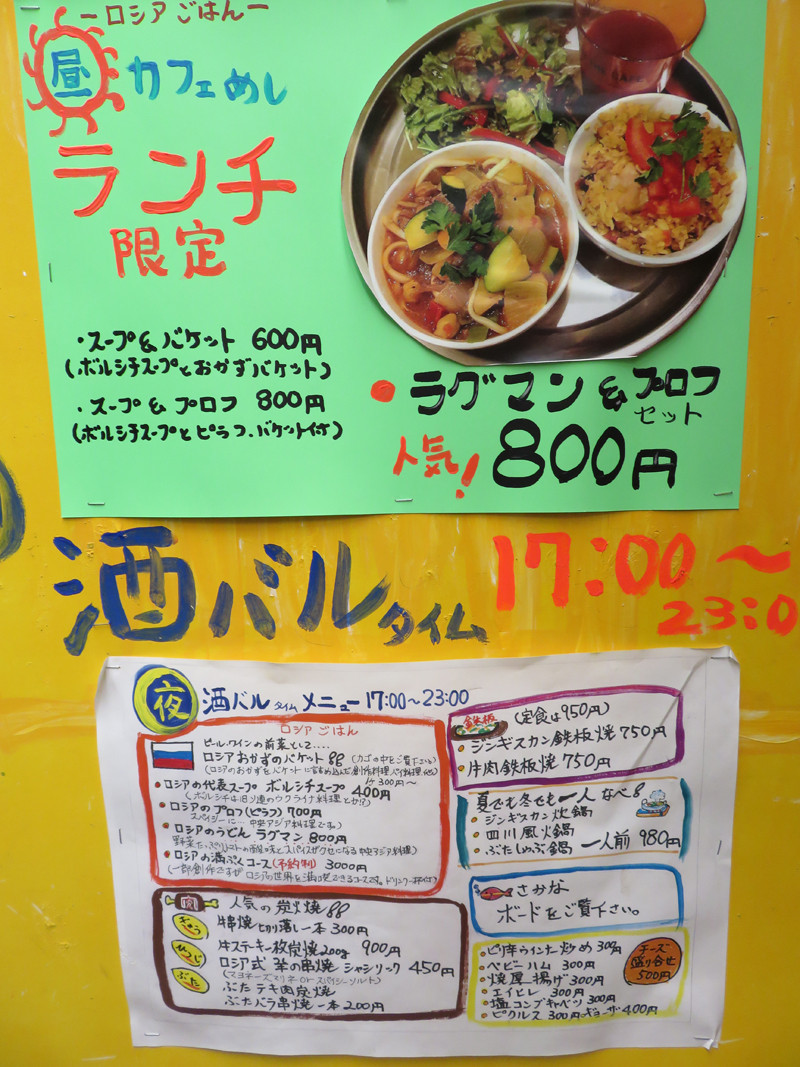 ーロシアごはんー
昼 カフェめし
ランチ
限定
・スープ&バケット 600円
(ボルシチスープとおかずバケット)
・スープ&プロフ 800円
(ボルシチスープとピラフ、バケット付)
●ラグマン&プロフ
セット
人気! 800円
酒バルタイム 17:00〜
23:0
夜 酒バルタイムメニュー17:00〜23:00
ロシアごはん
ビール、ワインの前菜として‥‥
ロシアおかずのバケット (カゴの中をご覧下さい)
1ケ300円〜
・ロシアの代表スープ ボルシチスープ 400円
・ロシアのプロフ(ピラフ)700円
スパイシーに…中央アジア料理です
・ロシアのうどん ラグマン 800円
・ロシアの満ぷくコース(予約制) 3000円
人気の炭火焼
ぎゅう
牛串焼 切り落し一本 300円
牛ステーキ一枚炭焼200g 900円
ひつじ
ロシア式 羊の串焼 シャシリック 450円
(マヨネーズマリネorスパイシーソルト)
ぶた
ぶたテキ肉炭焼
ぶたバラ串焼一本200円
鉄板 (定食は950円)
・ジンギスカン鉄板焼 750円
・牛肉鉄板焼 750円
夏でも冬でも一人なべ
・ジンギスカン炊鍋
・四川風火鍋
・ぶたしゃぶ鍋 一人前 980円
さかな
ボードをご覧下さい。
・ピリ辛ウインナー炒め 300円
・ベビーハム 300円
・焼厚揚げ 300円
・エイヒレ 300円
・塩コンブキャベツ 300円
・ピクルス 300円 ・ギョーザ 400円
チーズ
盛り合せ
500円